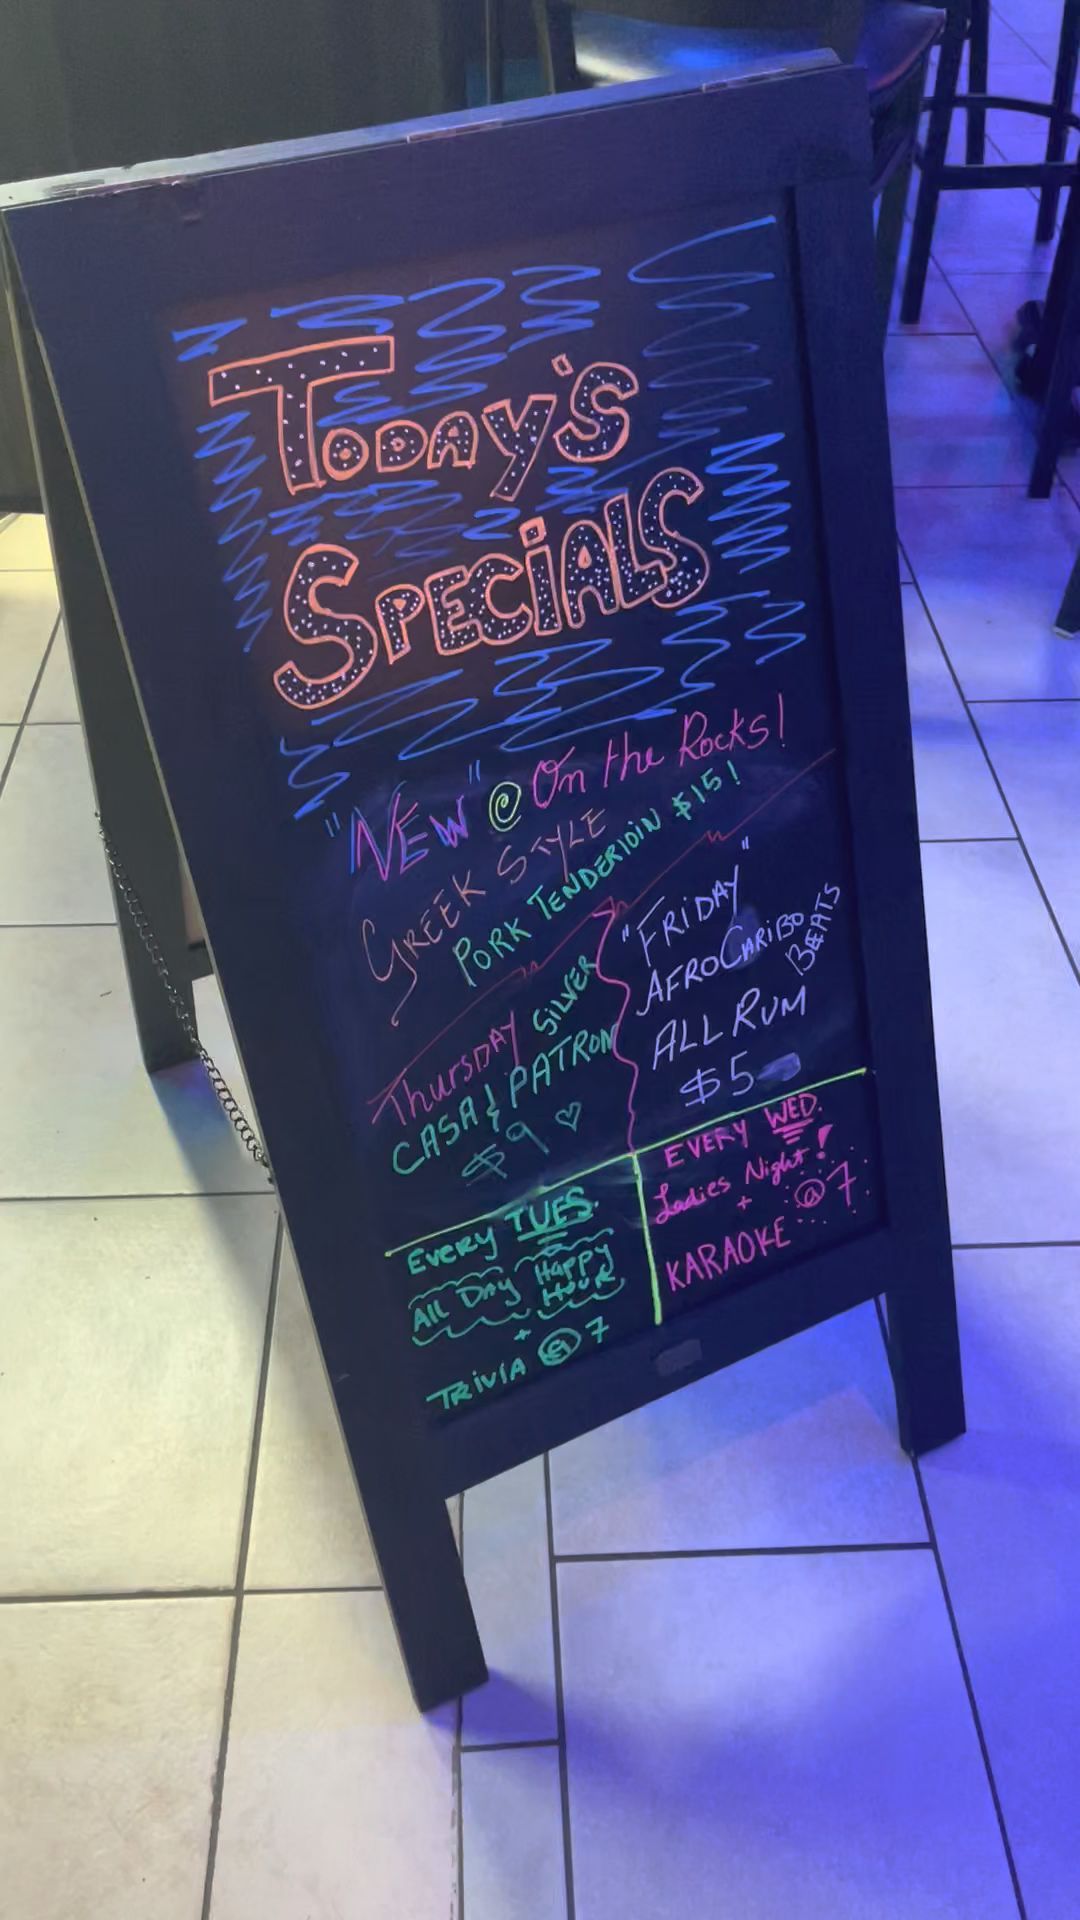 Today's
Specials
"NEW" @ On the Rocks!
GREEK STYLE
PORK TENDERIOIN $15!
Thursday SILVER
CASA & PATRON
$9 ♡
"FRIDAY"
AFROCARIBO BEATS
ALL RUM
$5
Every TUES.
All Day Happy Hour
+
TRIVIA @ 7
EVERY WED.
Ladies Night!
+
KARAOKE @ 7